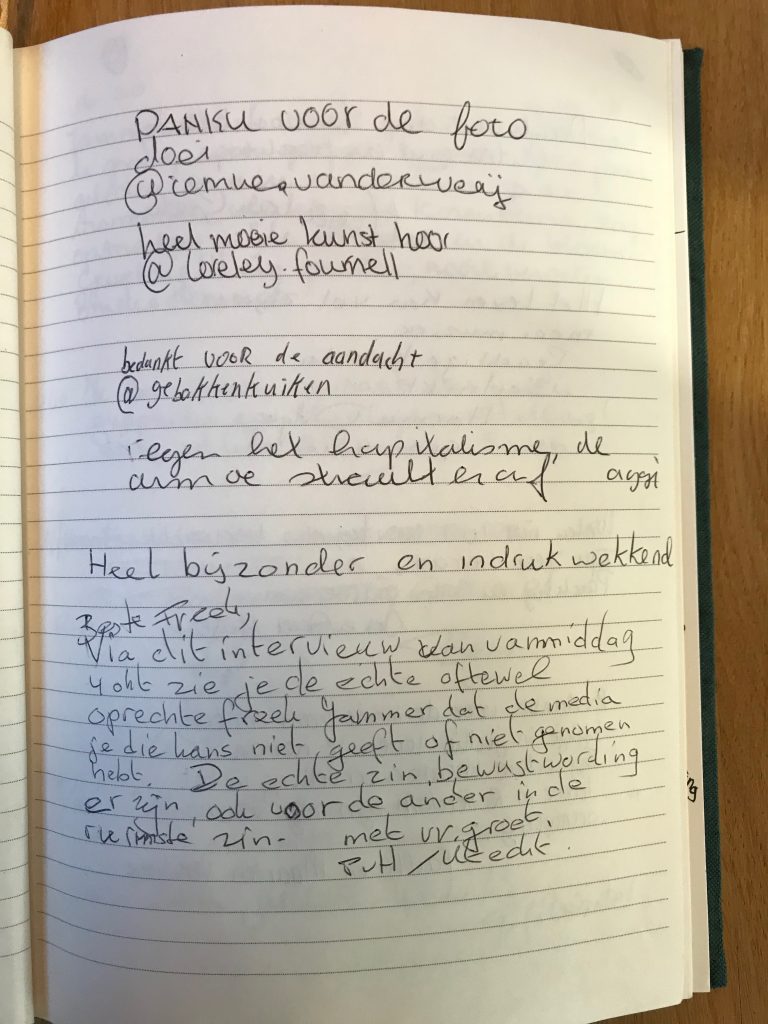 DANKU VOOR de foto
doei
@iemke.vanderweij
heel mooie kunst hoor
@loreley.fournell
bedankt VOOR de aandacht
@gebakkenkuiken
Tegen het kapitalisme, de
armoe straalt er af
Heel bijzonder en indrukwekkend
Beste Freek,
Via dit intervieuw van vanmiddag
4 okt zie je de echte oftewel
oprechte freek Jammer dat de media
je die kans niet geeft of niet genomen
hebt. De echte zin, bewustwording
er zijn, ook voor de ander in de
ruimste zin. met vr. groet,
PvH / Utrecht.